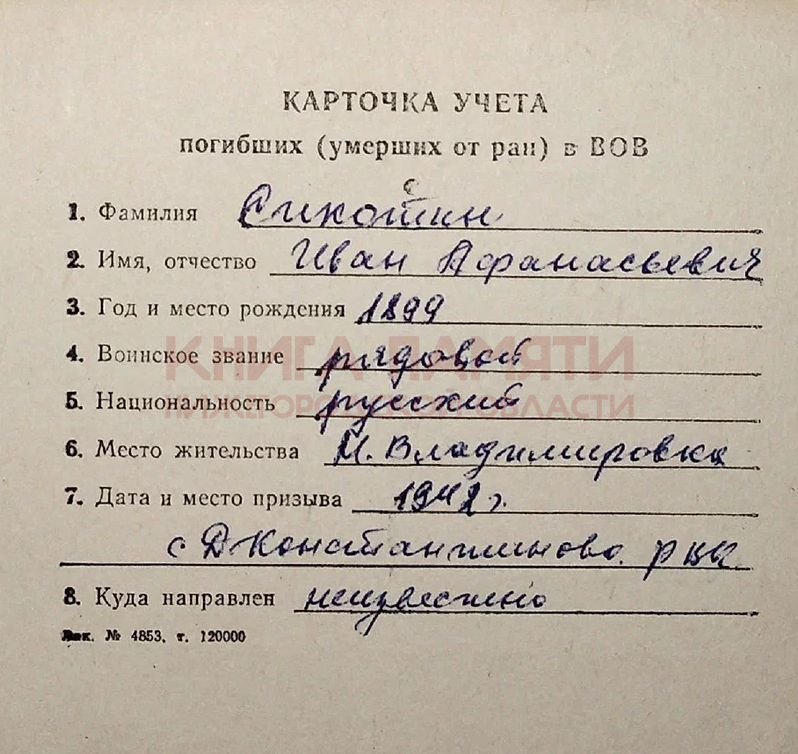 КАРТОЧКА УЧЕТА
погибших (умерших от ран) в ВОВ
1. Фамилия Сикоткин
2. Имя, отчество Иван Афанасьевич
3. Год и место рождения 1899
4. Воинское звание рядовой
5. Национальность русский
6. Место жительства М. Владимировка
7. Дата и место призыва 1942 г.
с Д Константиново. РВК
8. Куда направлен неизвестно
Зак. № 4853, т. 120000
КНИГА ПАМЯТИ
НИЖЕГОРОДСКОЙ ОБЛАСТИ